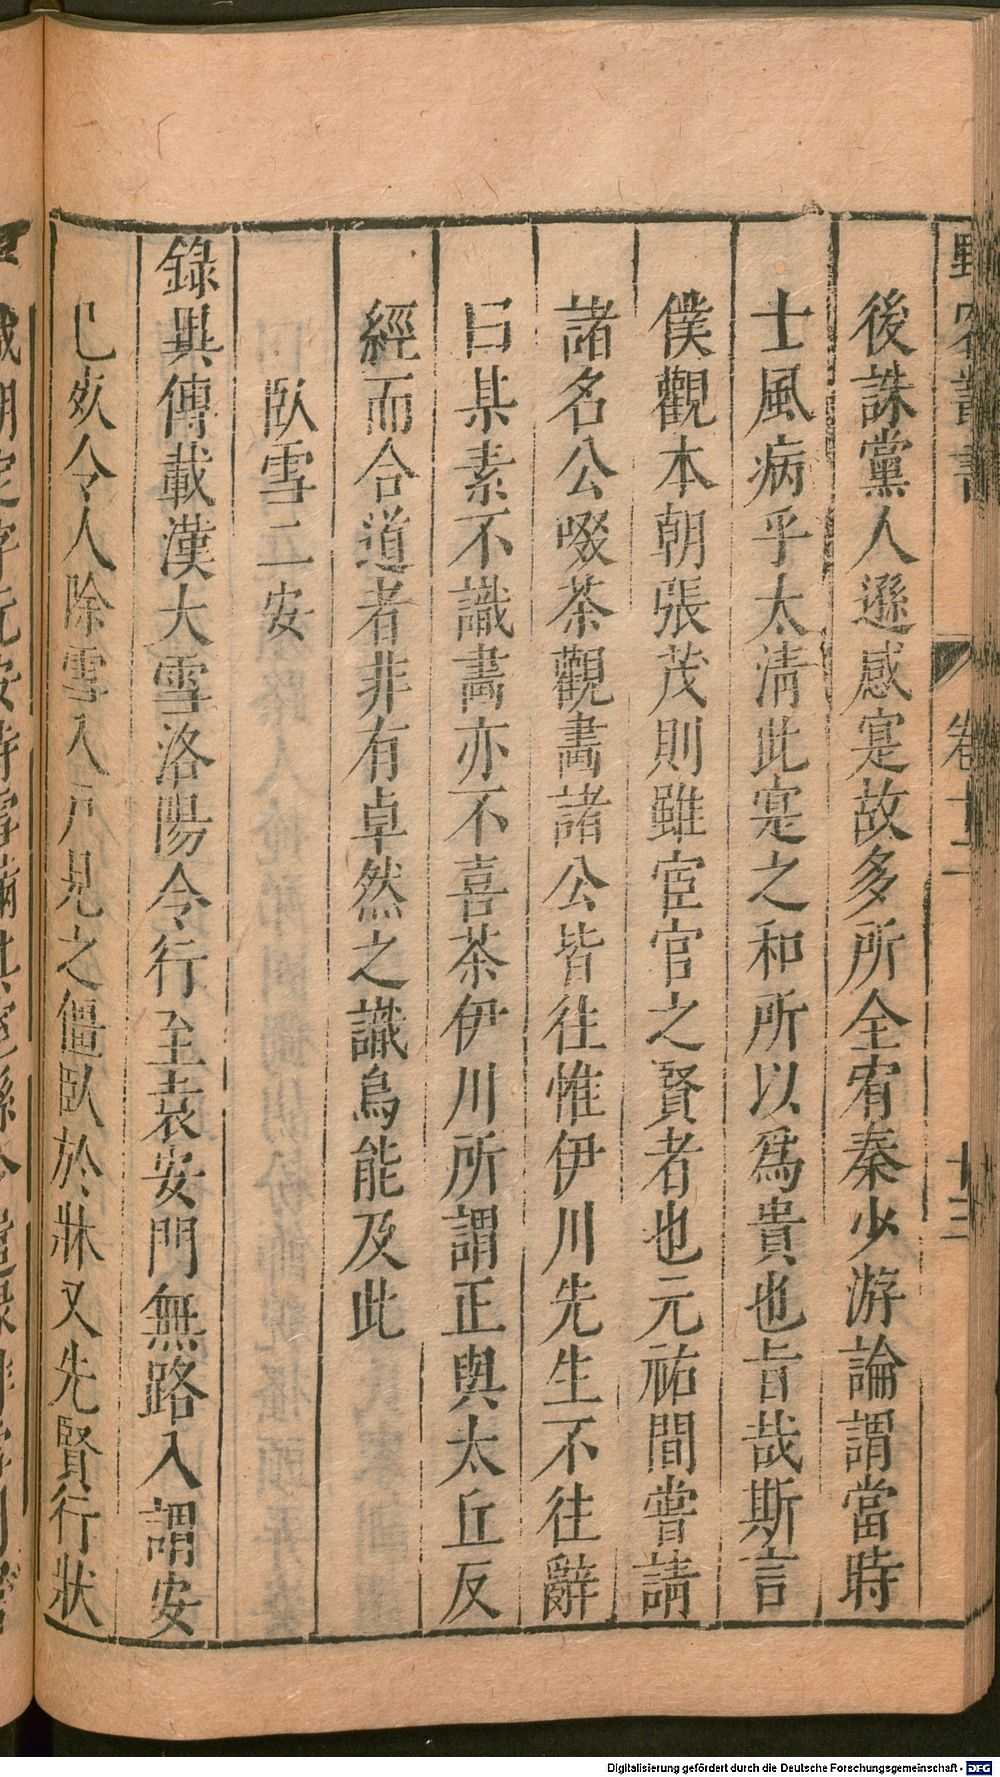 野客叢書
卷十二
十三
後誅黨人遜感寔故多所全宥秦少游論謂當時
士風病乎太清此寔之和所以爲貴也旨哉斯言
僕觀本朝張茂則雖宦官之賢者也元祐間嘗請
諸名公啜茶觀畵諸公皆往惟伊川先生不往辭
曰某素不識畵亦不喜茶伊川所謂正與太丘反
經而合道者非有卓然之識烏能及此
臥雪二安
錄異傳載漢大雪洛陽令行至袁安門無路入謂安
巳死令人除雪入戶見之僵臥於牀又先賢行狀
Digitalisierung gefördert durch die Deutsche Forschungsgemeinschaft - DFG